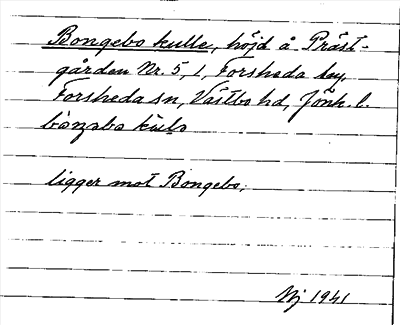 Bongebo kulle, höjd å Präst-
gården Nr. 5, 1, Forsheda by,
Forsheda sn, Västbo hd, Jönk. l.
båŋabo kulə
ligger mot Bongebo.
Nj 1941